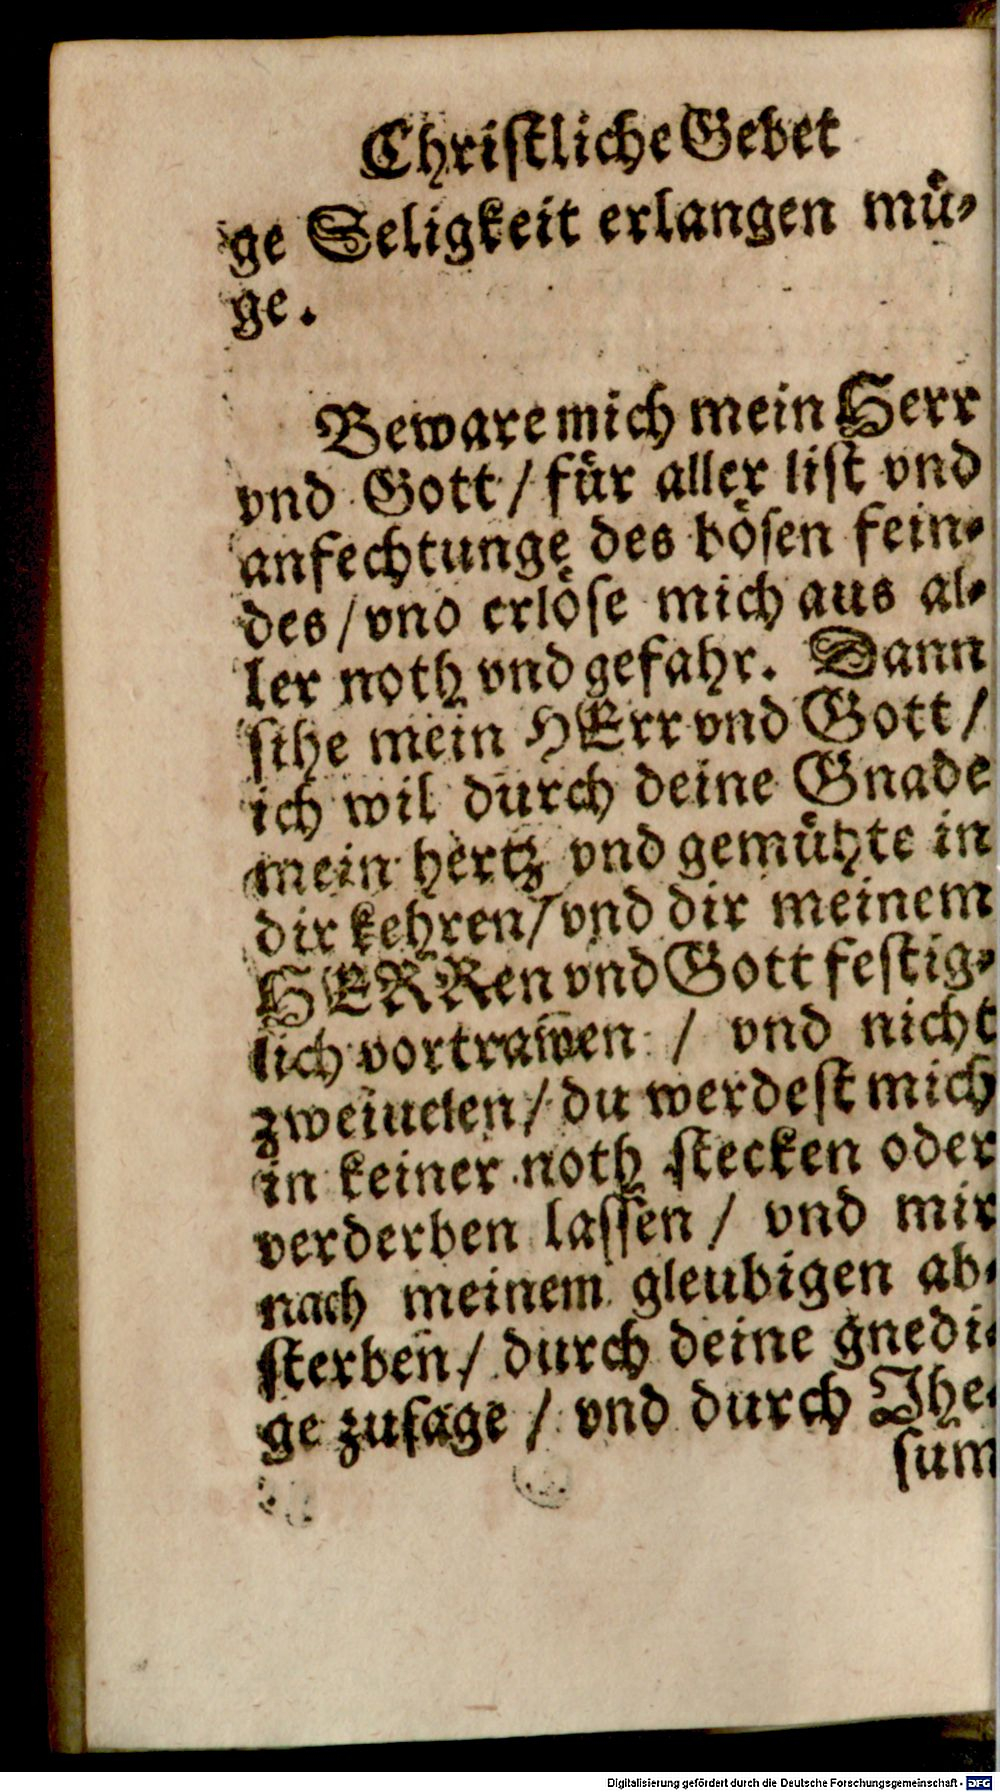 Christliche Gebet
ge Seligkeit erlangen mü-
ge.
Beware mich mein Herr
vnd Gott / für aller list vnd
anfechtunge des bösen fein-
des / vnd erlöse mich aus al-
ler noth vnd gefahr. Dann
sihe mein HErr vnd Gott /
ich wil durch deine Gnade
mein hertz vnd gemühte in
dir kehren / vnd dir meinem
HERRen vnd Gott festig-
lich vortrawen / vnd nicht
zweiuelen / du werdest mich
in keiner noth stecken oder
verderben lassen / vnd mir
nach meinem gleubigen ab-
sterben / durch deine gnedi-
ge zusage / vnd durch Jhe-
sum
Digitalisierung gefördert durch die Deutsche Forschungsgemeinschaft - DFG